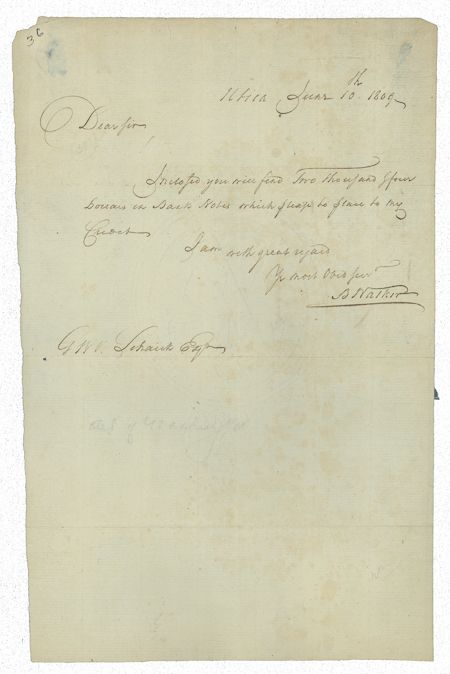 36
Utica June 10th 1809
Dear sir
Inclosed you will find Two thousand & four
Dollars in Bank Notes which please to place to my
Credit
I am with great regard
Yr most Obed serv
B Walker
G W V. Schaick Esqr